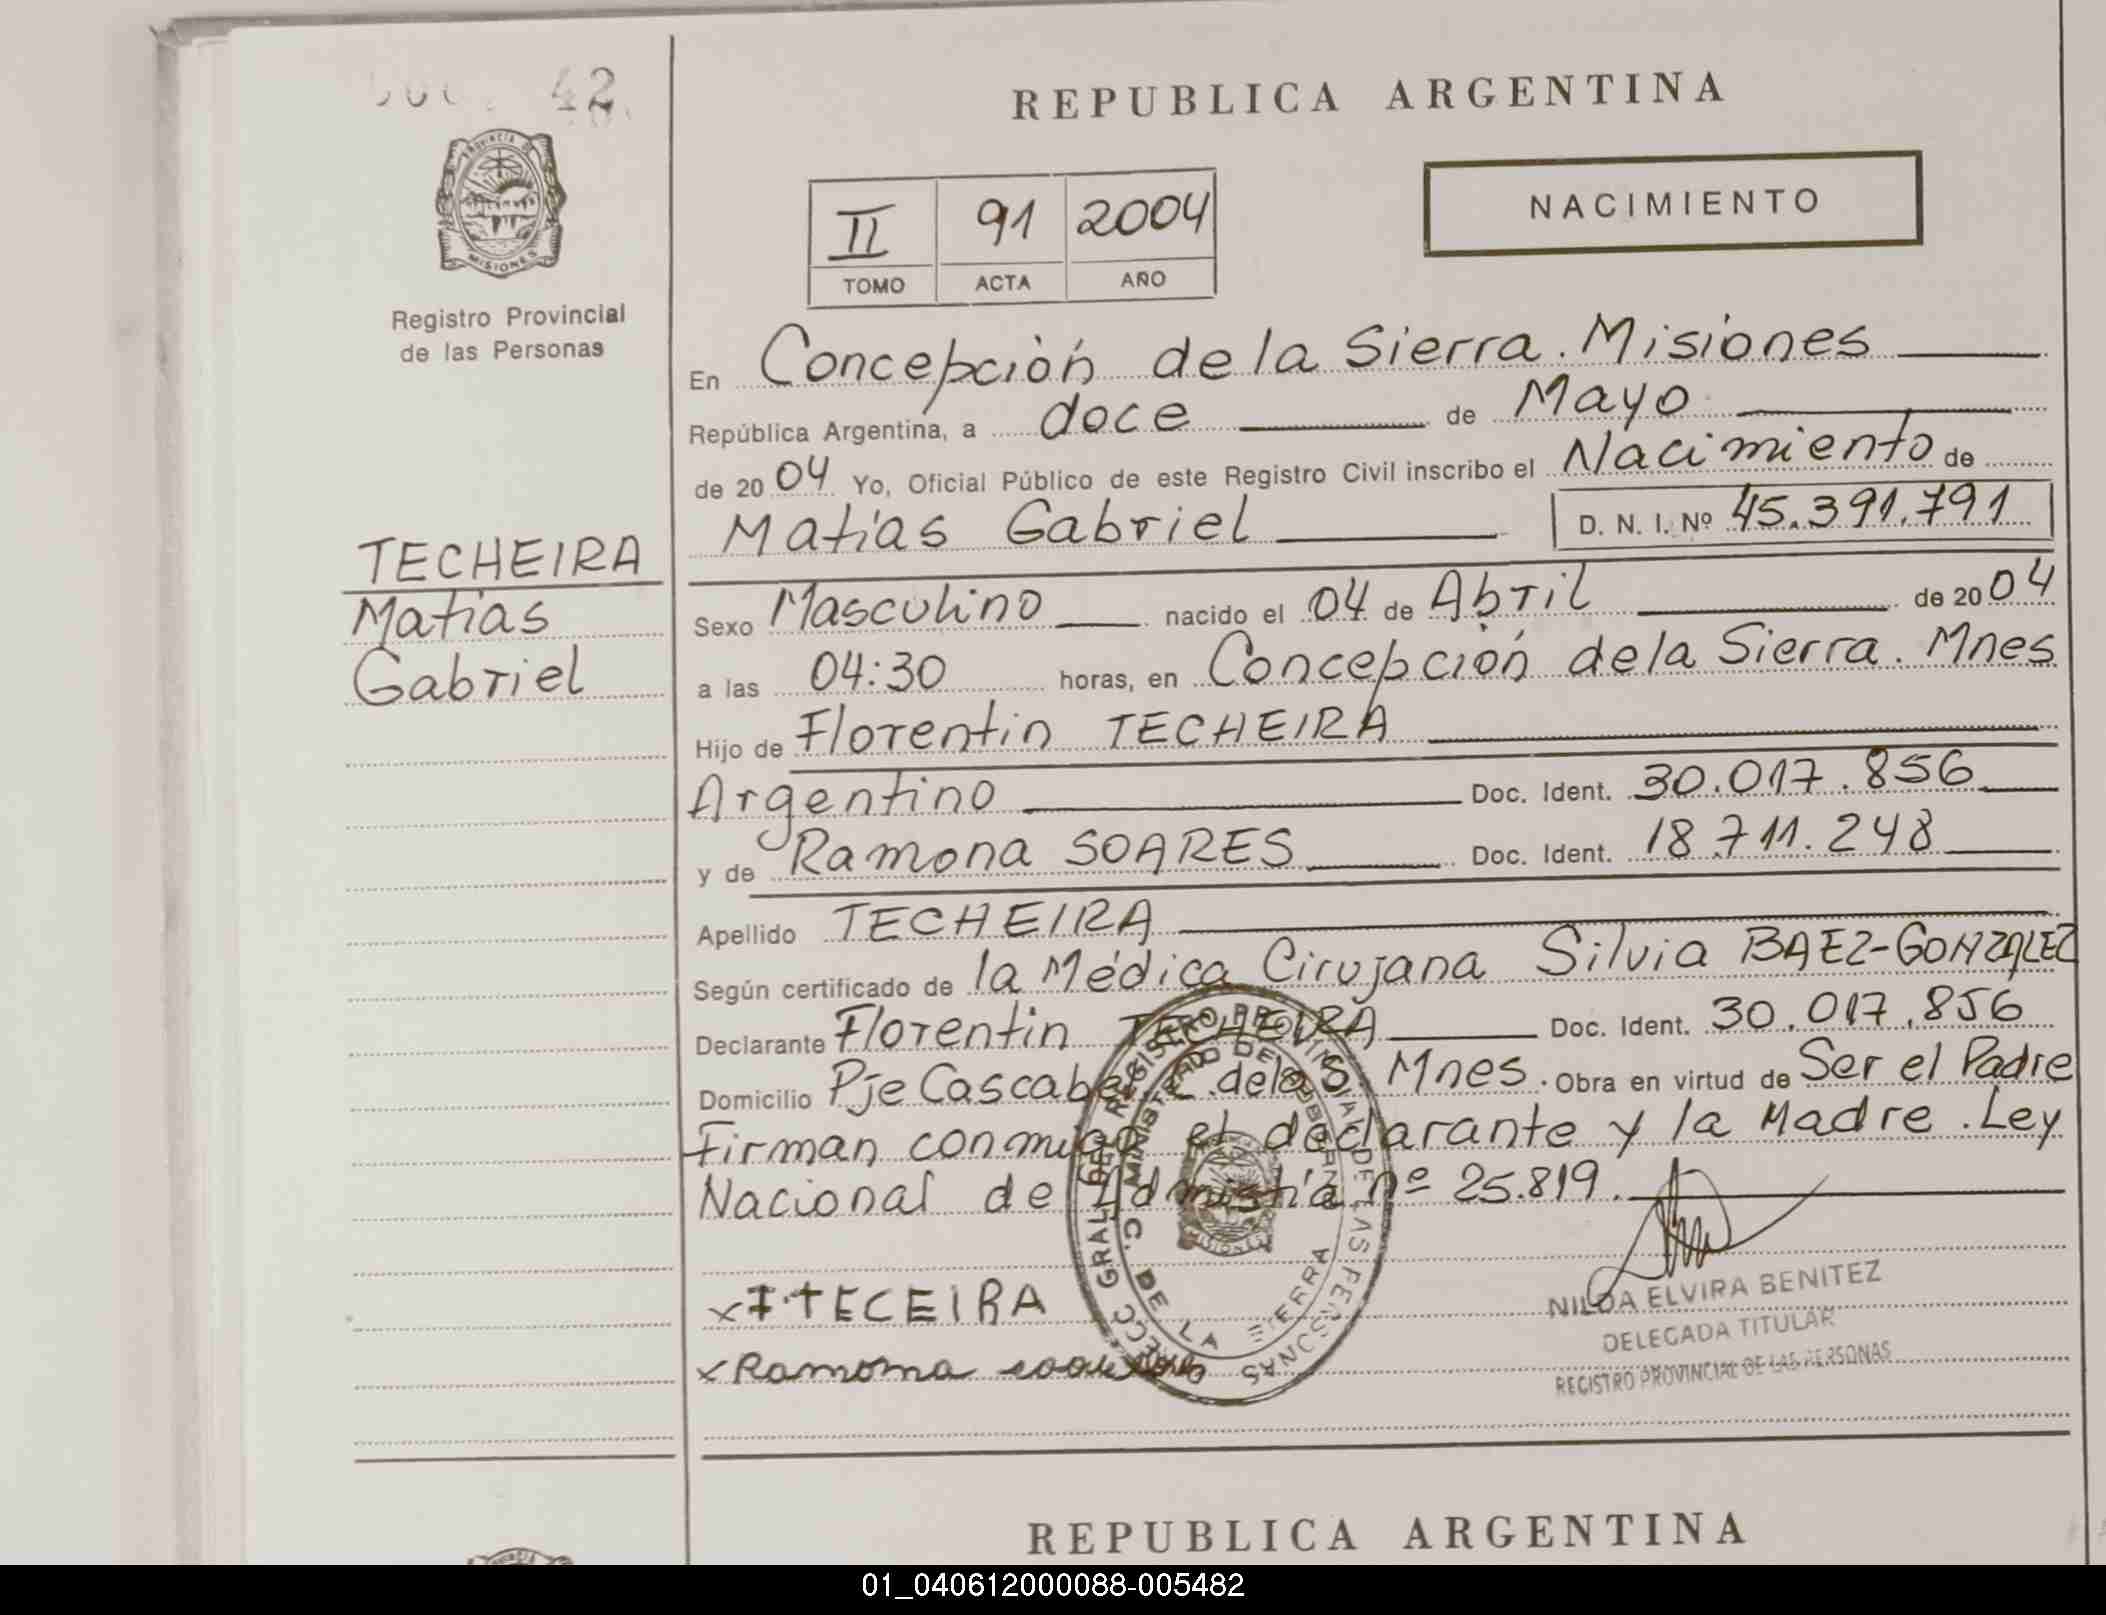 42
PROVINCIA DE
MISIONES
Registro Provincial
de las Personas
TECHEIRA
Matias
Gabriel
REPUBLICA ARGENTINA
II 91 2004
TOMO ACTA AÑO
NACIMIENTO
En Concepción de la Sierra. Misiones
República Argentina, a doce de Mayo
de 2004 Yo, Oficial Público de este Registro Civil inscribo el Nacimiento de
Matías Gabriel D. N. I. Nº 45.391.791
Sexo Masculino nacido el 04 de Abril de 2004
a las 04:30 horas, en Concepción de la Sierra. Mnes
Hijo de Florentin TECHEIRA
Argentino Doc. Ident. 30.017.856
y de Ramona SOARES Doc. Ident. 18.711.248
Apellido TECHEIRA
Según certificado de la Médica Cirujana Silvia BAEZ-GONZALEZ
Declarante Florentin TECHEIRA Doc. Ident. 30.017.856
Domicilio Pje Cascabel C. de la S. Mnes. Obra en virtud de Ser el Padre
Firman conmigo el declarante y la Madre. Ley
Nacional de Admistía nº 25.819.
x F. TECEIRA
x Ramoma
NILDA ELVIRA BENITEZ
DELEGADA TITULAR
REGISTRO PROVINCIAL DE LAS PERSONAS
DIRECC. GRAL. DEL REGISTRO PROVINCIAL DE LAS PERSONAS
MINISTERIO DE GOBIERNO
C. DE LA SIERRA
MISIONES
REPUBLICA ARGENTINA
01_040612000088-005482